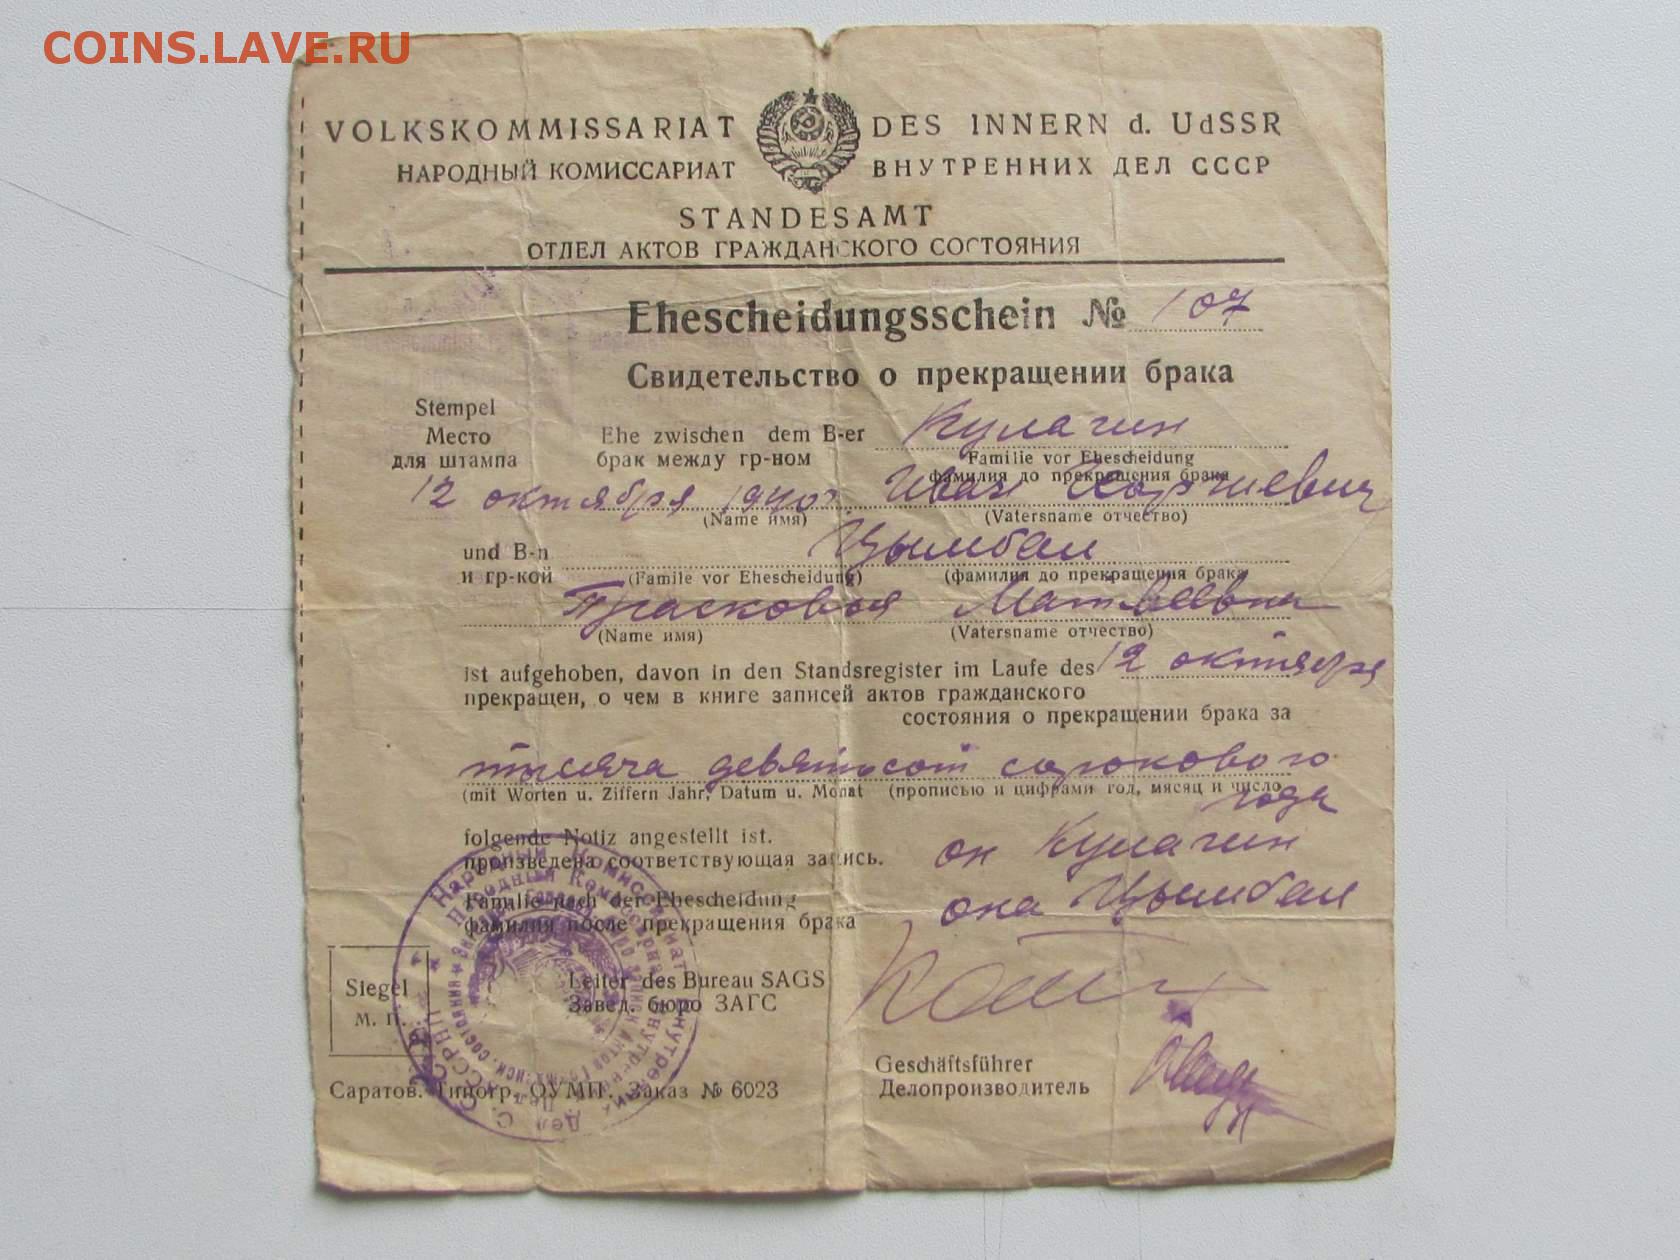 COINS.LAVE.RU
VOLKSKOMMISSARIAT DES INNERN d. UdSSR
НАРОДНЫЙ КОМИССАРИАТ ВНУТРЕННИХ ДЕЛ СССР
STANDESAMT
ОТДЕЛ АКТОВ ГРАЖДАНСКОГО СОСТОЯНИЯ
Ehescheidungsschein № 107
Свидетельство о прекращении брака
Stempel
Место
для штампа
Ehe zwischen dem B-er Кулагин
брак между гр-ном
Familie vor Ehescheidung
фамилия до прекращения брака
12 октября 1940 г Иван Георгиевич
(Name имя) (Vatersname отчество)
und B-n Цымбал
и гр-кой (Famile vor Ehescheidung) (фамилия до прекращения брака
Прасковья Матвеевна
(Name имя) (Vatersname отчество)
ist aufgehoben, davon in den Standsregister im Laufe des 12 октября
прекращен, о чем в книге записей актов гражданского
состояния о прекращении брака за
тысяча девятьсот сорокового
(mit Worten u. Ziffern Jahr, Datum u. Monat (прописью и цифрами год, месяц и число
года
folgende Notiz angestellt ist.
произведена соответствующая запись.
он Кулагин
Familie nach der Ehescheidung
фамилия после прекращения брака
она Цымбал
Siegel
м. п.
Leiter des Bureau SAGS
Завед. бюро ЗАГС
Geschäftsführer
Делопроизводитель
Саратов. Типогр. ОУМП. Заказ № 6023
Народный Комиссариат Внутренних Дел С.С.С.Р.